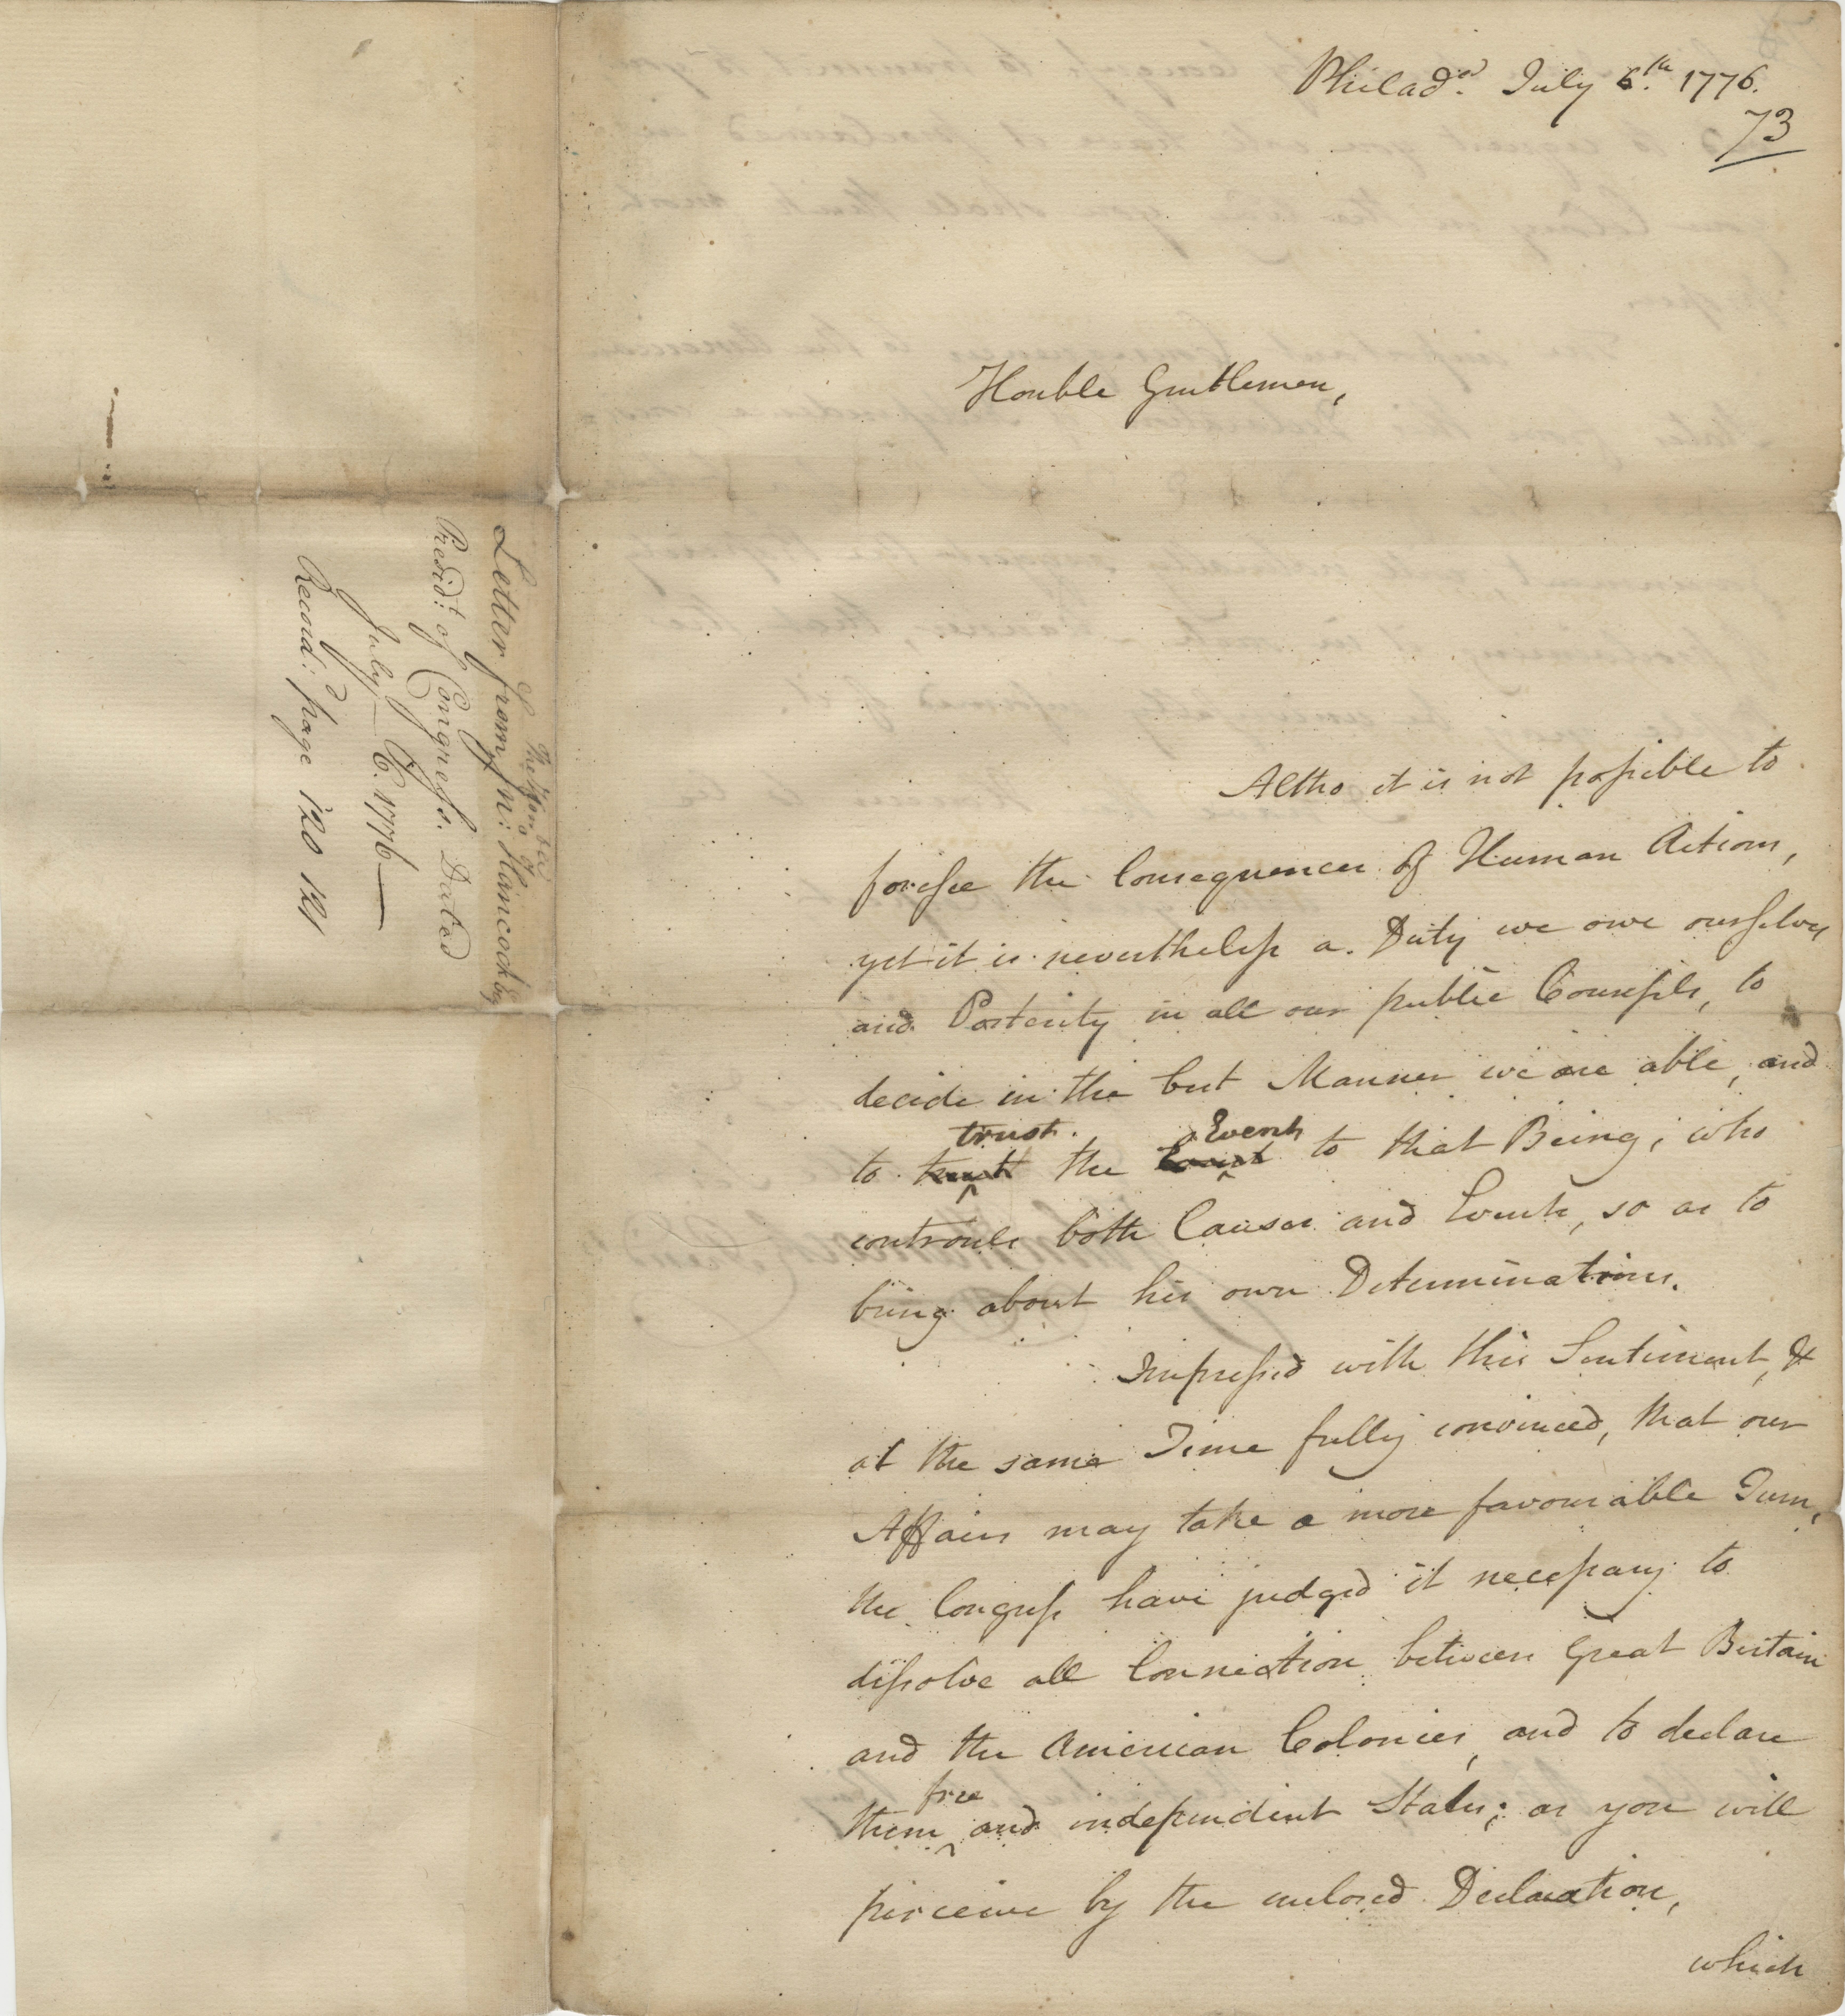 Philad.ᵃ July 6.ᵗʰ 1776.
73
Honble Gentlemen,
Altho it is not possible to
foresee the Consequences of Human Actions,
yet it is nevertheless a Duty we owe ourselves
and Posterity in all our public Counsels, to
decide in the best Manner we are able, and
trust Event
to the to that Being, who
controuls both Causes and Events, so as to
bring about his own Determinations.
Impressed with this Sentiment, &
at the same Time fully convinced, that our
Affairs may take a more favourable Turn,
the Congress have judged it necessary to
dissolve all Connection between Great Britain
and the American Colonies, and to declare
free
them and independent States; as you will
perceive by the enclosed Declaration,
which
The Honble
Letter from Jn: Hancock Esq
Presid:ᵗ of Congress. Dated
July 6. 1776
Record:ᵈ page 120 121